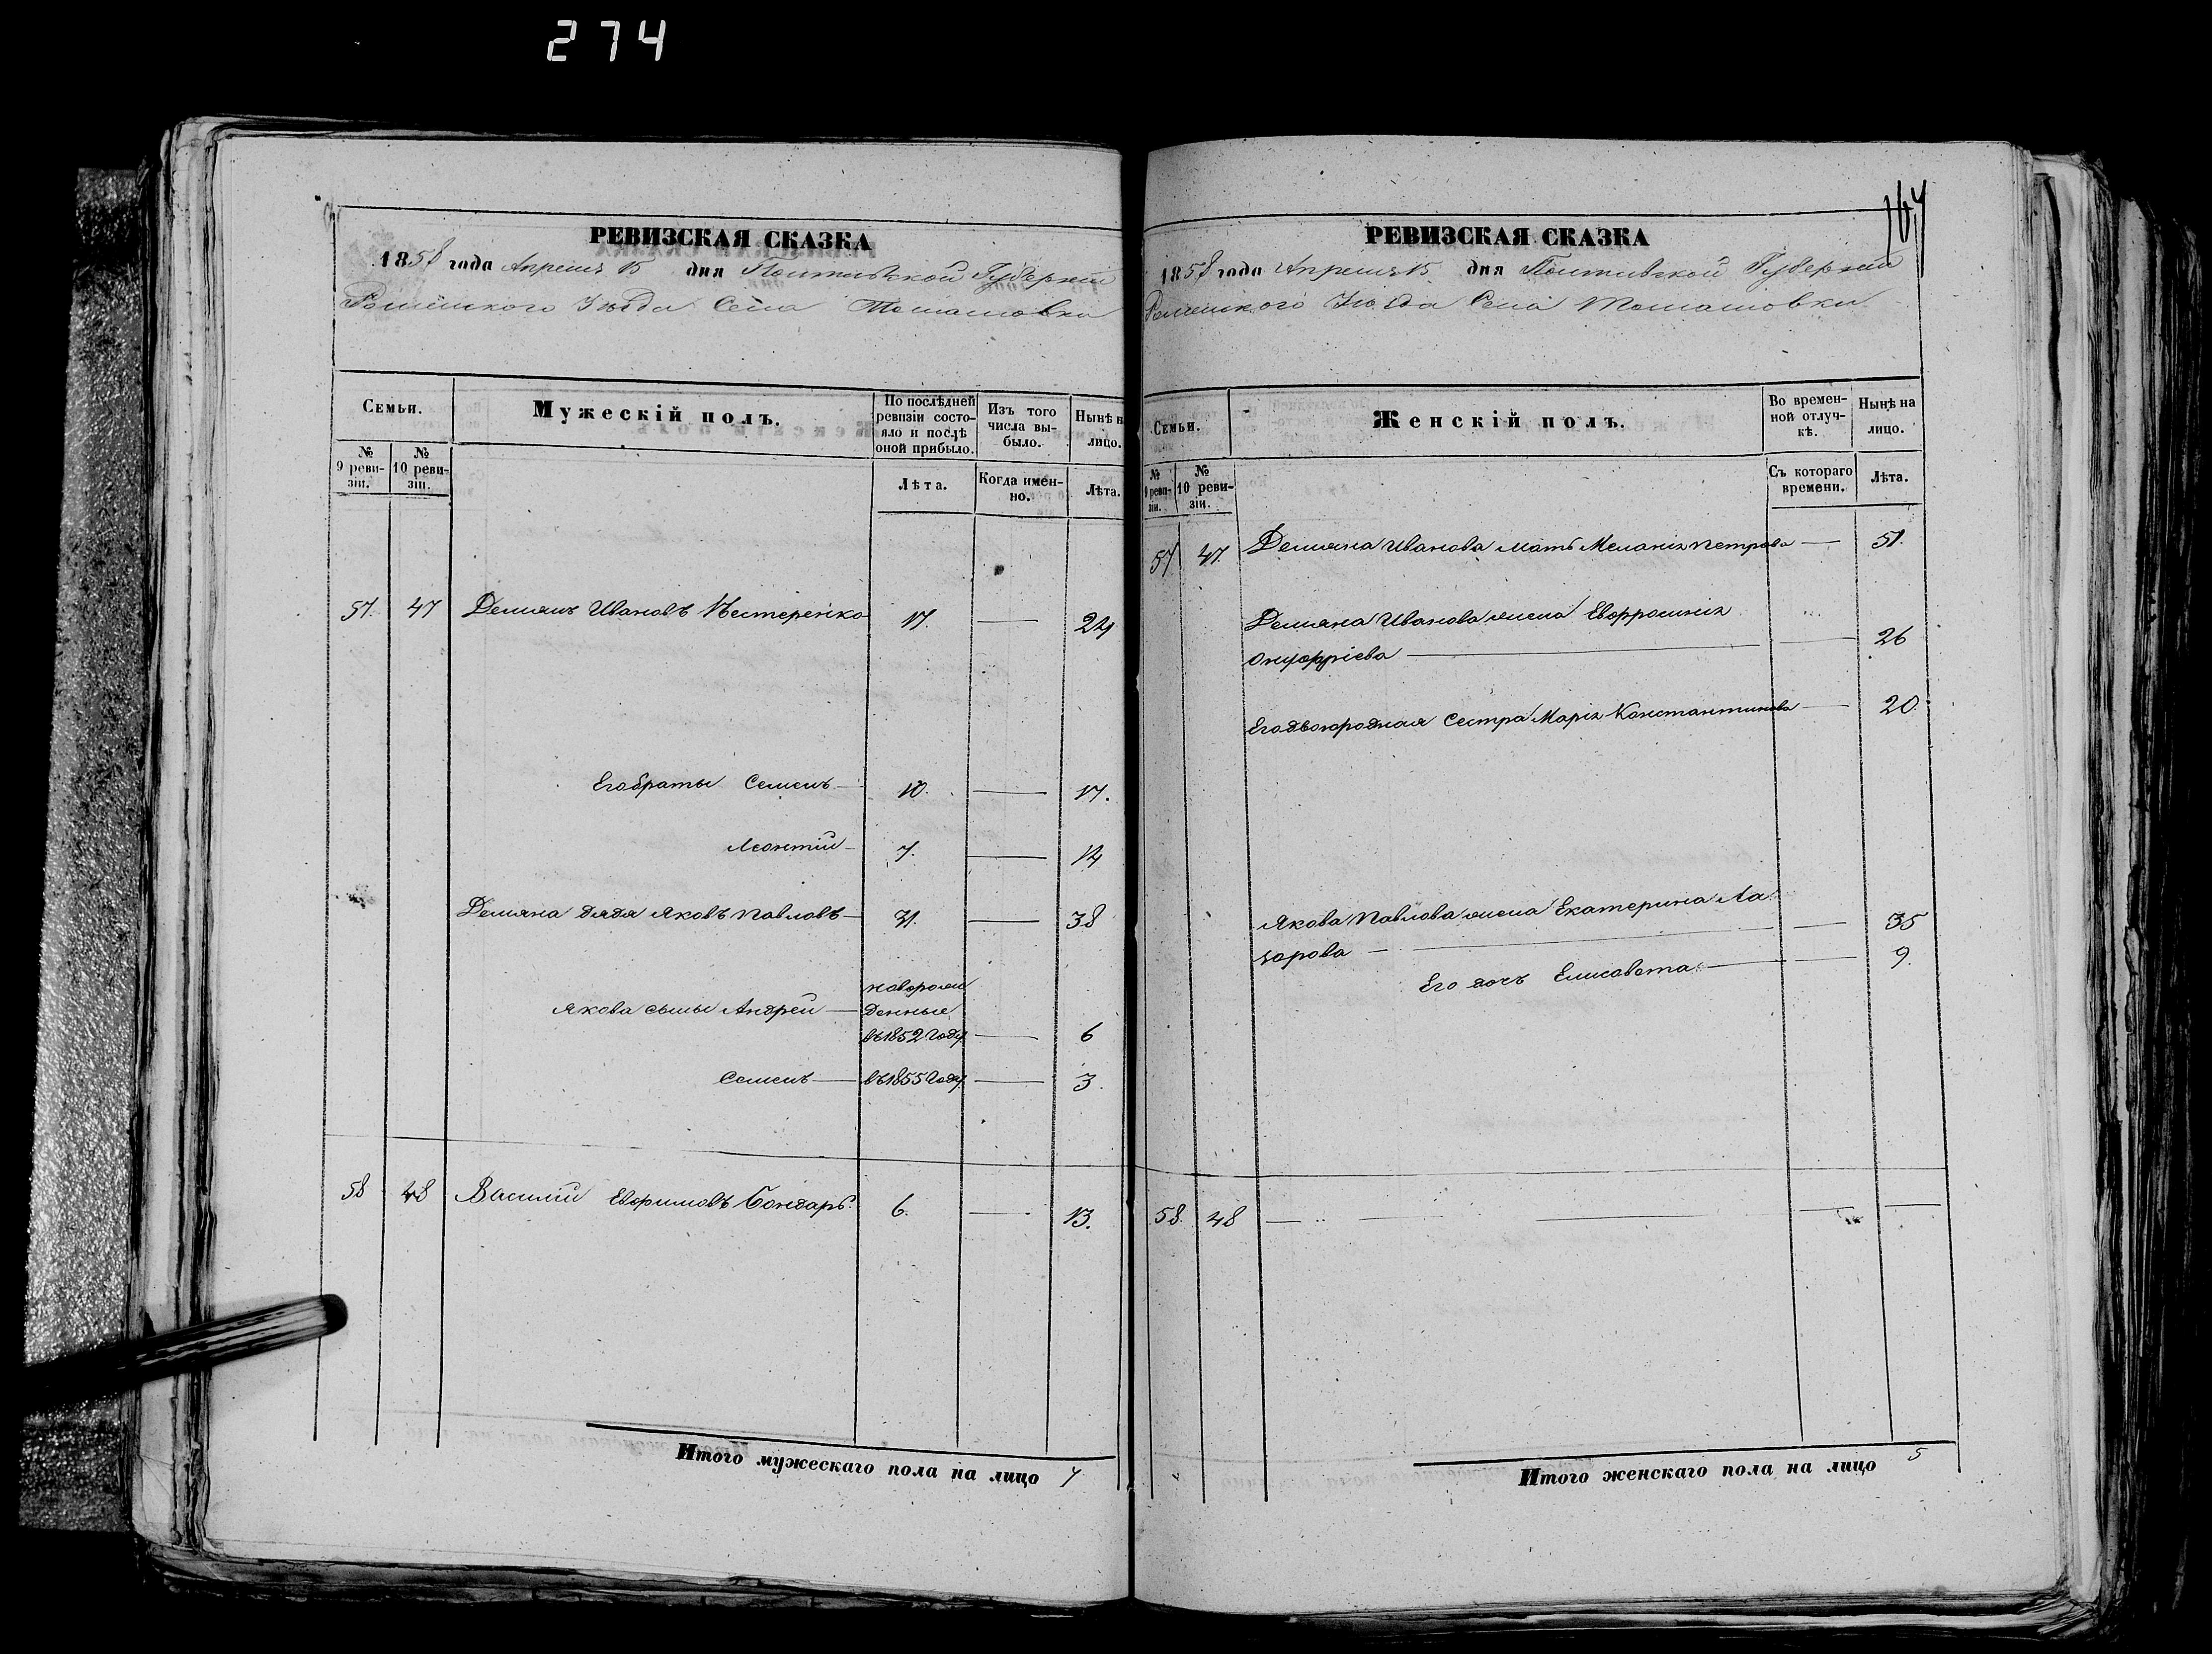 274
164
РЕВИЗСКАЯ СКАЗКА
1858 года Апреля 15 дня Полтавской Губерніи
Роменского Уѣзда Села Томашовки
Семьи.
Мужескій полъ.
По послѣдней ревизіи состояло и послѣ оной прибыло.
Изъ того числа выбыло.
Нынѣ н
лицо.
№ 9 ревизіи.
№ 10 ревизіи.
Лѣта.
Когда именно.
Лѣта.
57. 47 Демянъ Ивановъ Нестеренко 17. — 24
Его братья Семенъ — 10. — 17.
Леонтій — 7. — 14
Демяна дядя Яковъ Павловъ — 31. — 38
Якова сыны Андрей — новорож
денные
въ 1852 году — 6
Семенъ — въ 1855 году — 3.
58 48 Василій Евфимовъ Бондарь. 6. — 13.
Итого мужескаго пола на лицо 7
РЕВИЗСКАЯ СКАЗКА
1858 года Апреля 15 дня Полтавской Губерніи
Роменского Уѣзда Села Томашовки
Семьи.
Женскій полъ.
Во временной отлучкѣ.
Нынѣ на лицо.
№ 9 ревизіи.
№ 10 ревизіи.
Съ котораго времени.
Лѣта.
57 47. Демяна Иванова мать Меланія Петрова — 51.
Демяна Иванова жена Евфросинія
Онуфріева — 26
Его двоюродная сестра Марія Константинова — 20.
Якова Павлова жена Екатерина Ла
зарова — 35
Его дочь Елисавета — 9.
58. 48 — — — — —
Итого женскаго пола на лицо 5